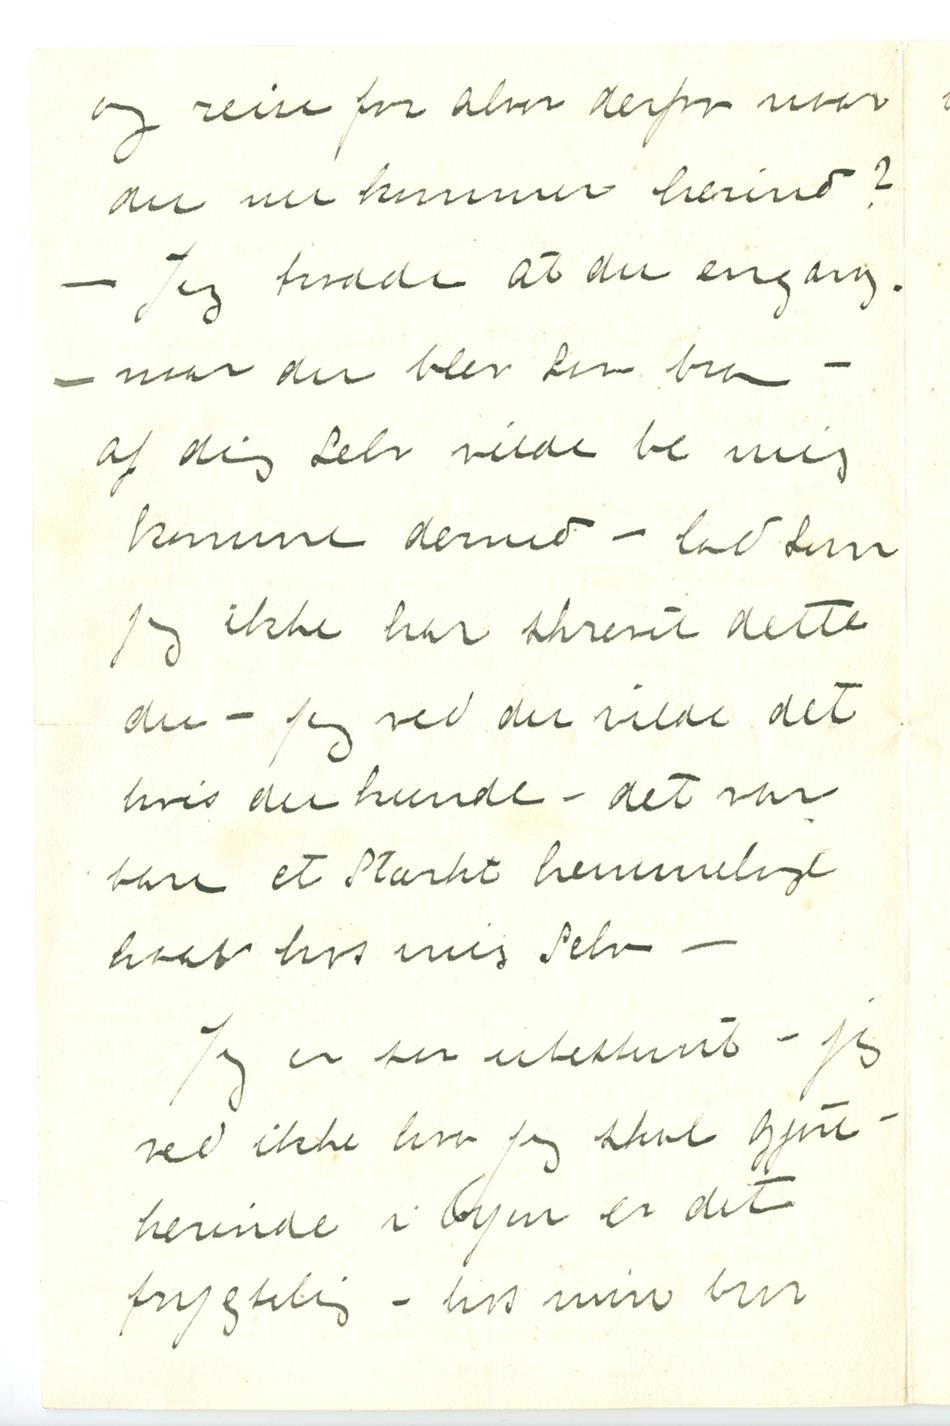 og reise for alvor derfra naar
du nu kommer herind?
— Jeg trodde at du engang.
— naar du blev saa bra —
af dig selv vilde be mig
komme derned — lad som
jeg ikke har skrevet dette
du — jeg ved du vilde det
hvis du kunde — det var
bare et stærkt hemmeligt
haab hos mig selv —
Jeg er saa ubestemt — jeg
ved ikke hva jeg skal gjøre —
herinde i Byen er det
frygtelig — hos min bror